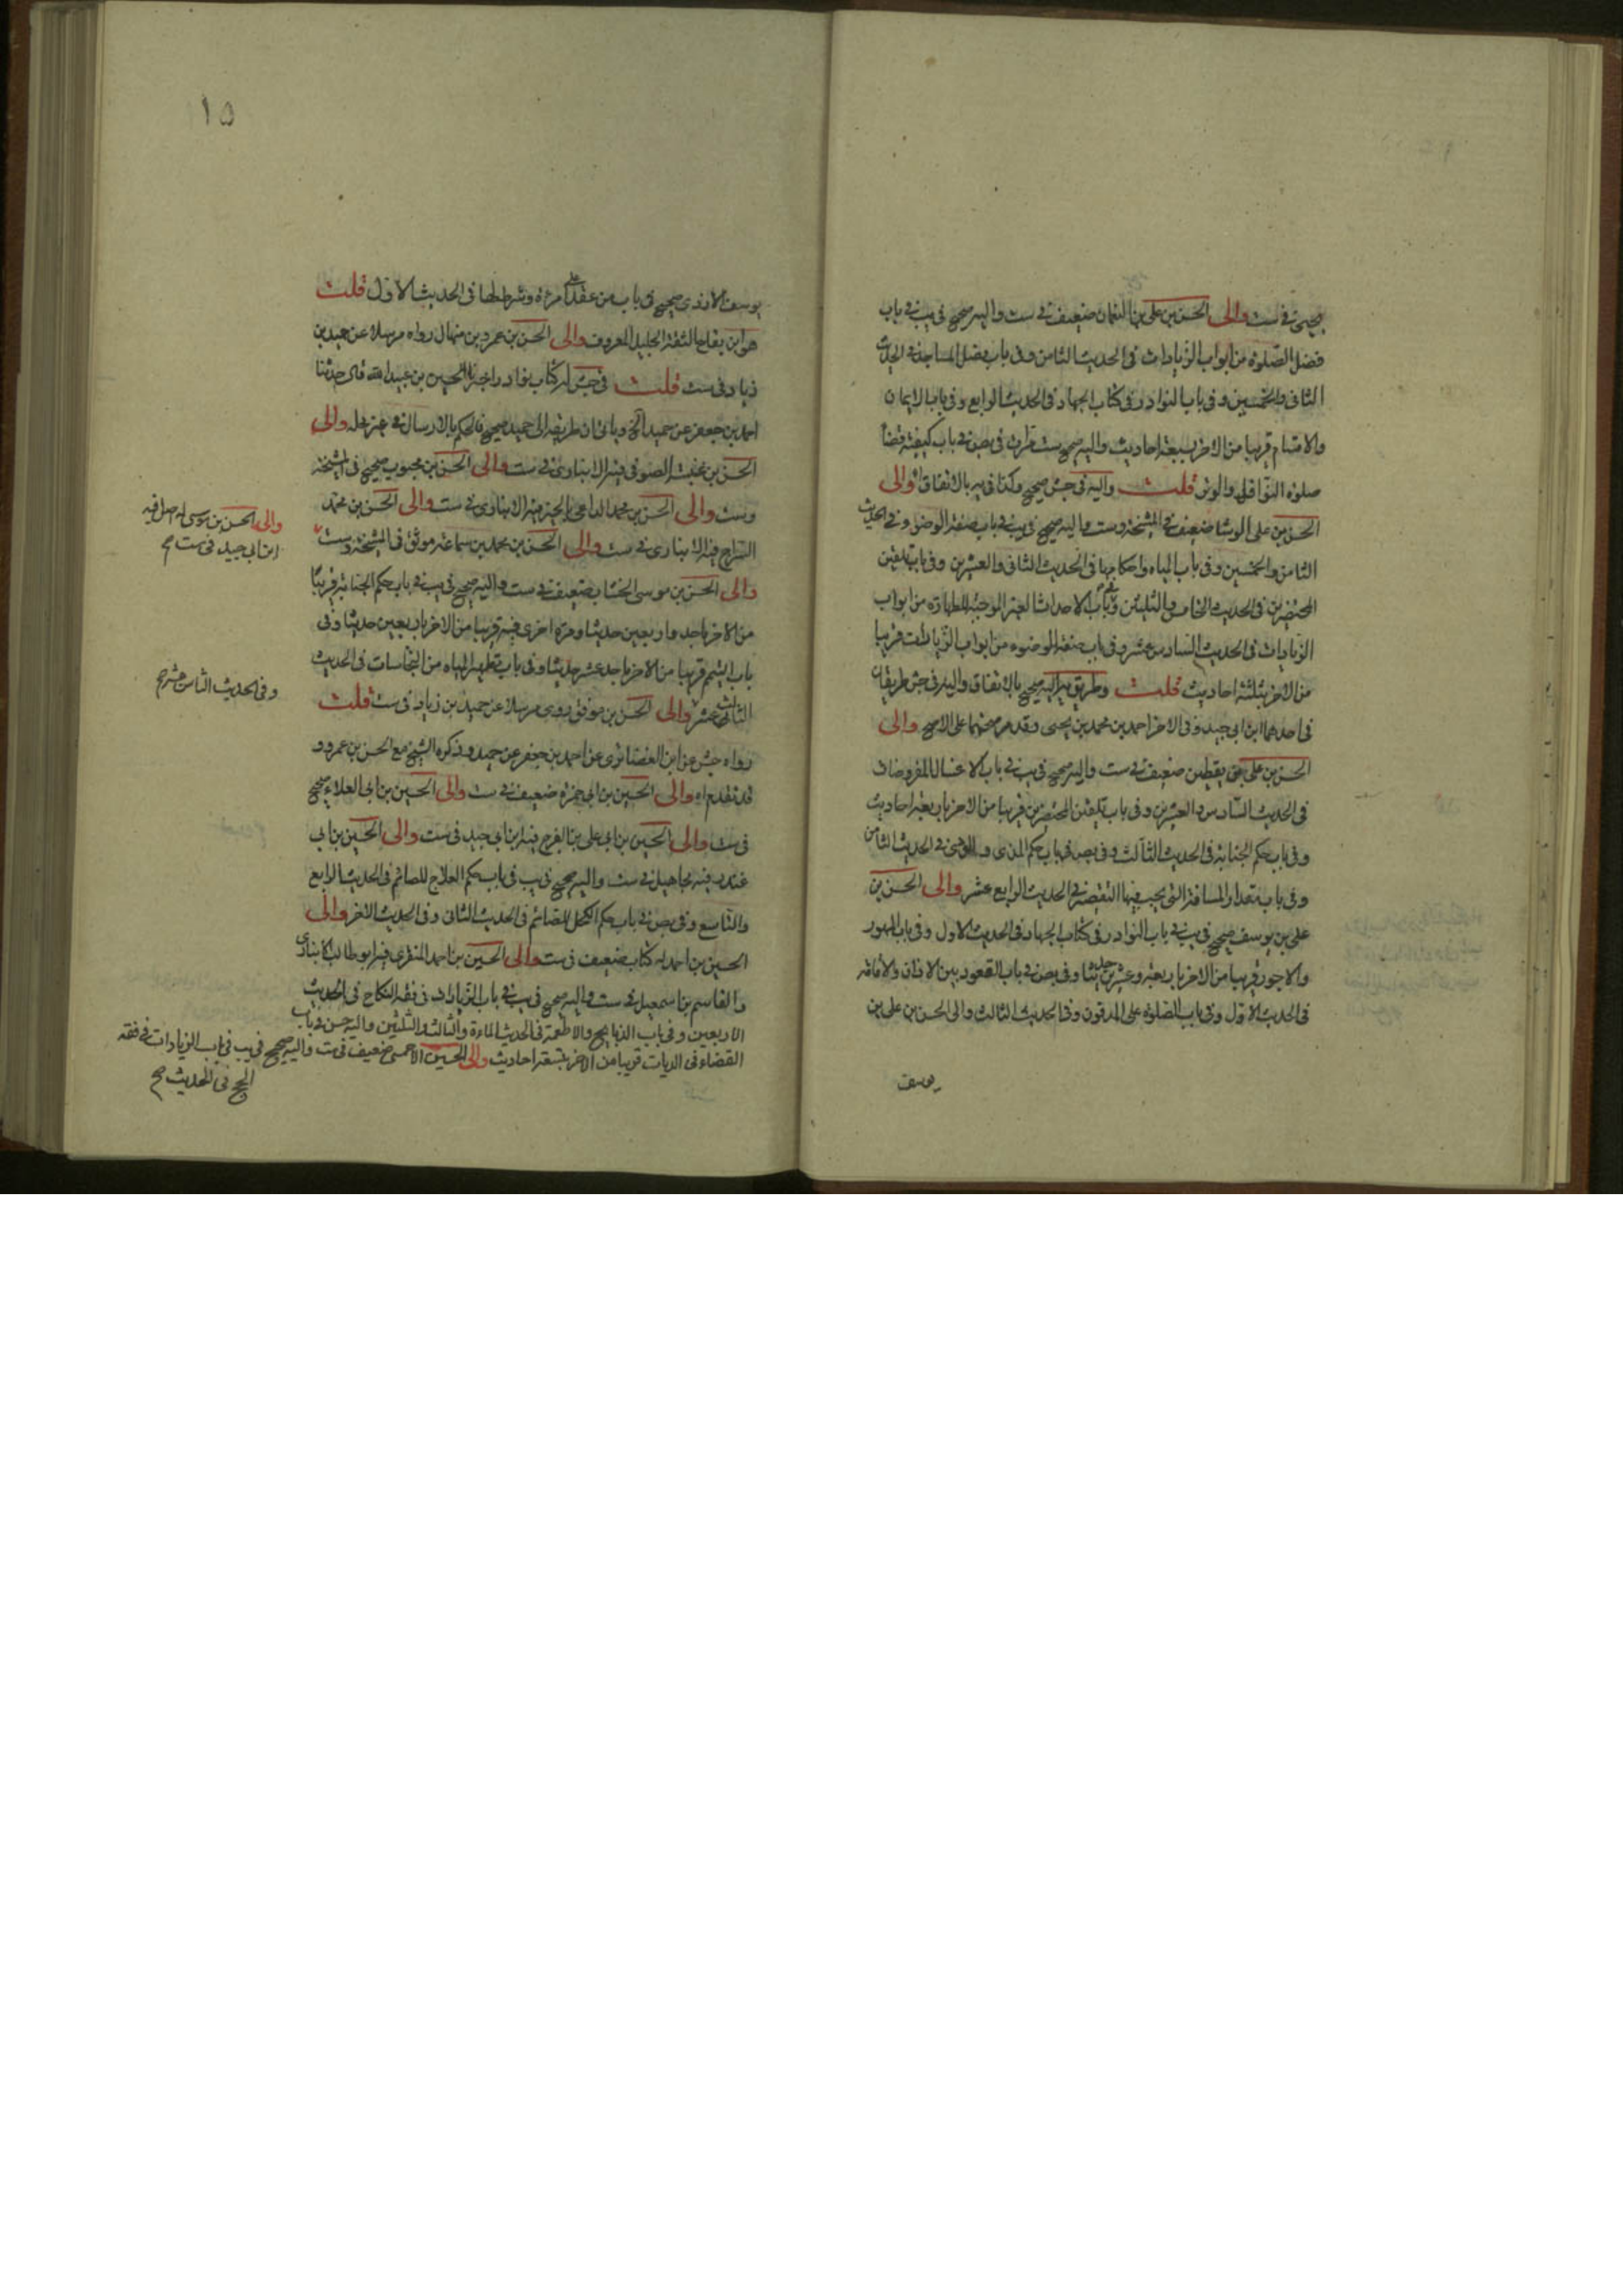 صحيح في ست والى الحسن بن علي بن النعمان ضعيف في ست واليه صحيح في يب في باب
فضل الصلوة من ابواب الزيادات في الحديث الثامن وفي باب فضل المساجد في الحديث
الثاني والخمسين وفي باب النوادر في كتاب الجهاد في الحديث الرابع وفي باب الايمان
والاقسام قريبا من الاخر بسبعة احاديث واليه صحيح ست مرات في بص في باب كيفية قضاء
صلوة النوافل والوتر قلت واليه في جش صحيح وكذا في يه بالاتفاق والى
الحسن بن علي الوشا ضعيف في المشيخة وست واليه صحيح في يب في باب صفة الوضوء وفي الحديث
الثامن والخمسين وفي باب المياه واحكامها في الحديث الثاني والعشرين وفي باب تلقين
المحتضرين في الحديث الخامس والثلثين وفي باب الاحداث الغير الموجبة للطهارة من ابواب
الزيادات في الحديث السادس عشر وفي باب صفة الوضوء من ابواب الزيادات قريبا
من الاخر بثلثة احاديث قلت وطريق يه اليه صحيح بالاتفاق واليه في جش طريقان
في احدهما ابن ابي جيد وفي الاخر احمد بن محمد بن يحيى وقد مر صحتهما على الاصح والى
الحسن بن علي بن يقطين ضعيف في ست واليه صحيح في يب في باب الاغسال المفروضات
في الحديث السادس والعشرين وفي باب تلقين المحتضرين قريبا من الاخر باربعة احاديث
وفي باب حكم الجنابة في الحديث الثالث وفي بص في باب حكم المذى والوذى في الحديث الثامن
وفي باب مقدار المسافة التي يجب فيها التقصير في الحديث الرابع عشر والى الحسن بن
علي بن يوسف صحيح في يب في باب النوادر في كتاب الجهاد في الحديث الاول وفي باب المهور
والاجور قريبا من الاخر باربعة وعشرين حديثا وفي بص في باب القعود بين الاذان والاقامة
في الحديث الاول وفي باب الصلوة على المدفون وفي الحديث الثالث والى الحسن بن علي بن
يوسف
١٥
يوسف الازدى صحيح في باب من عقد على امرءة وشرط لها في الحديث الاول قلت
هو ابن بقاح الثقة الجليل المعروف والى الحسن بن عمرو بن منهال رواه مرسلا عن حميد بن
زياد في ست قلت في جش له كتاب نوادر اخبرنا الحسين بن عبيد الله قال حدثنا
احمد بن جعفر عن حميد الخ وياتي ان طريقه الى حميد صحيح فالحكم بالارسال في غير محله والى
الحسن بن عنبسة الصوفي فيه الانبارى في ست والى الحسن بن محبوب صحيح في المشيخة
وست والى الحسن بن محمد فيه الانبارى في ست والى الحسن بن محمد
السراج فيه الانبارى في ست والى الحسن بن محمد بن سماعة موثق في المشيخة وست
والى الحسن بن موسى له اصل فيه
ابن ابي جيد في ست صح
والى الحسن بن موسى الخشاب ضعيف في ست واليه صحيح في يب في باب حكم الجنابة قريبا
من الاخر باحد واربعين حديثا ومرة اخرى فيه قريبا من الاخر باربعين حديثا وفي
باب التيمم قريبا من الاخر باحد عشر حديثا وفي باب تطهير المياه من النجاسات في الحديث
وفي الحديث الثامن عشر صح
الثالث عشر والى الحسن بن موفق روى مرسلا عن حميد بن زياد في ست قلت
رواه جش عن ابن الغضائرى عن احمد بن جعفر عن حميد وذكره الشيخ مع الحسن بن عمرو و
قد تقدم اه والى الحسين بن ابي حمزة ضعيف في ست والى الحسين بن ابي العلاء صحيح
في ست والى الحسين بن ابي علي بن الفرج فيه ابن ابي جيد في ست والى الحسين بن ابي
غندر فيه مجاهيل في ست واليه صحيح في يب في باب حكم العلاج للصائم في الحديث الرابع
والتاسع وفي بص في باب حكم الكحل للصائم في الحديث الثاني وفي الحديث الاخر والى
الحسين بن احمد له كتاب ضعيف في ست والى الحسين بن احمد المنقرى فيه ابو طالب الانبارى
والقاسم بن اسمعيل في ست واليه صحيح في يب في باب الزيادات في فقه النكاح في الحديث
الاربعين وفي باب الذبايح والاطعمة في الحديث الماءة والثالث والثلثين واليه حسن في باب
القضاء في الديات قريبا من الاخر بتسعة احاديث والى الحسين الاحمسى ضعيف في ست واليه صحيح في يب في باب الزيادات في فقه
الحج في الحديث صح